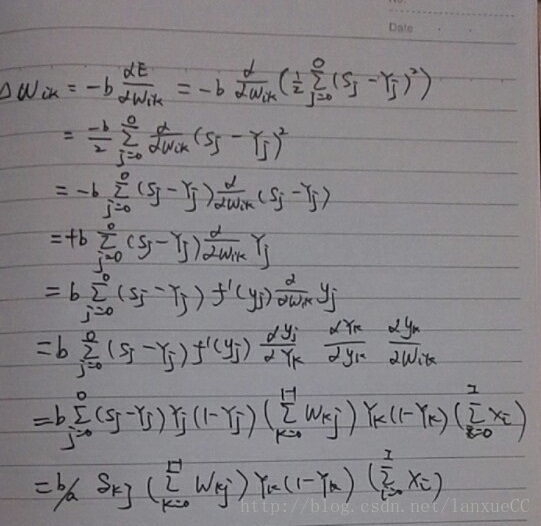 No.
Date
ΔWik = -b ∂E/∂Wik = -b ∂/∂Wik (1/2 Σ_{j=0}^{O} (Sj - Yj)²)
= -b/2 Σ_{j=0}^{O} ∂/∂Wik (Sj - Yj)²
= -b Σ_{j=0}^{O} (Sj - Yj) ∂/∂Wik (Sj - Yj)
= +b Σ_{j=0}^{O} (Sj - Yj) ∂/∂Wik Yj
= b Σ_{j=0}^{O} (Sj - Yj) f'(yj) ∂/∂Wik yj
= b Σ_{j=0}^{O} (Sj - Yj) f'(yj) ∂yj/∂Yk ∂Yk/∂yk ∂yk/∂Wik
= b Σ_{j=0}^{O} (Sj - Yj) Yj (1 - Yj) (Σ_{k=0}^{H} Wkj) Yk (1 - Yk) (Σ_{i=0}^{I} Xi)
= b/a δkj (Σ_{k=0}^{H} Wkj) Yk (1 - Yk) (Σ_{i=0}^{I} Xi)
http://blog.csdn.net/lanxueCC